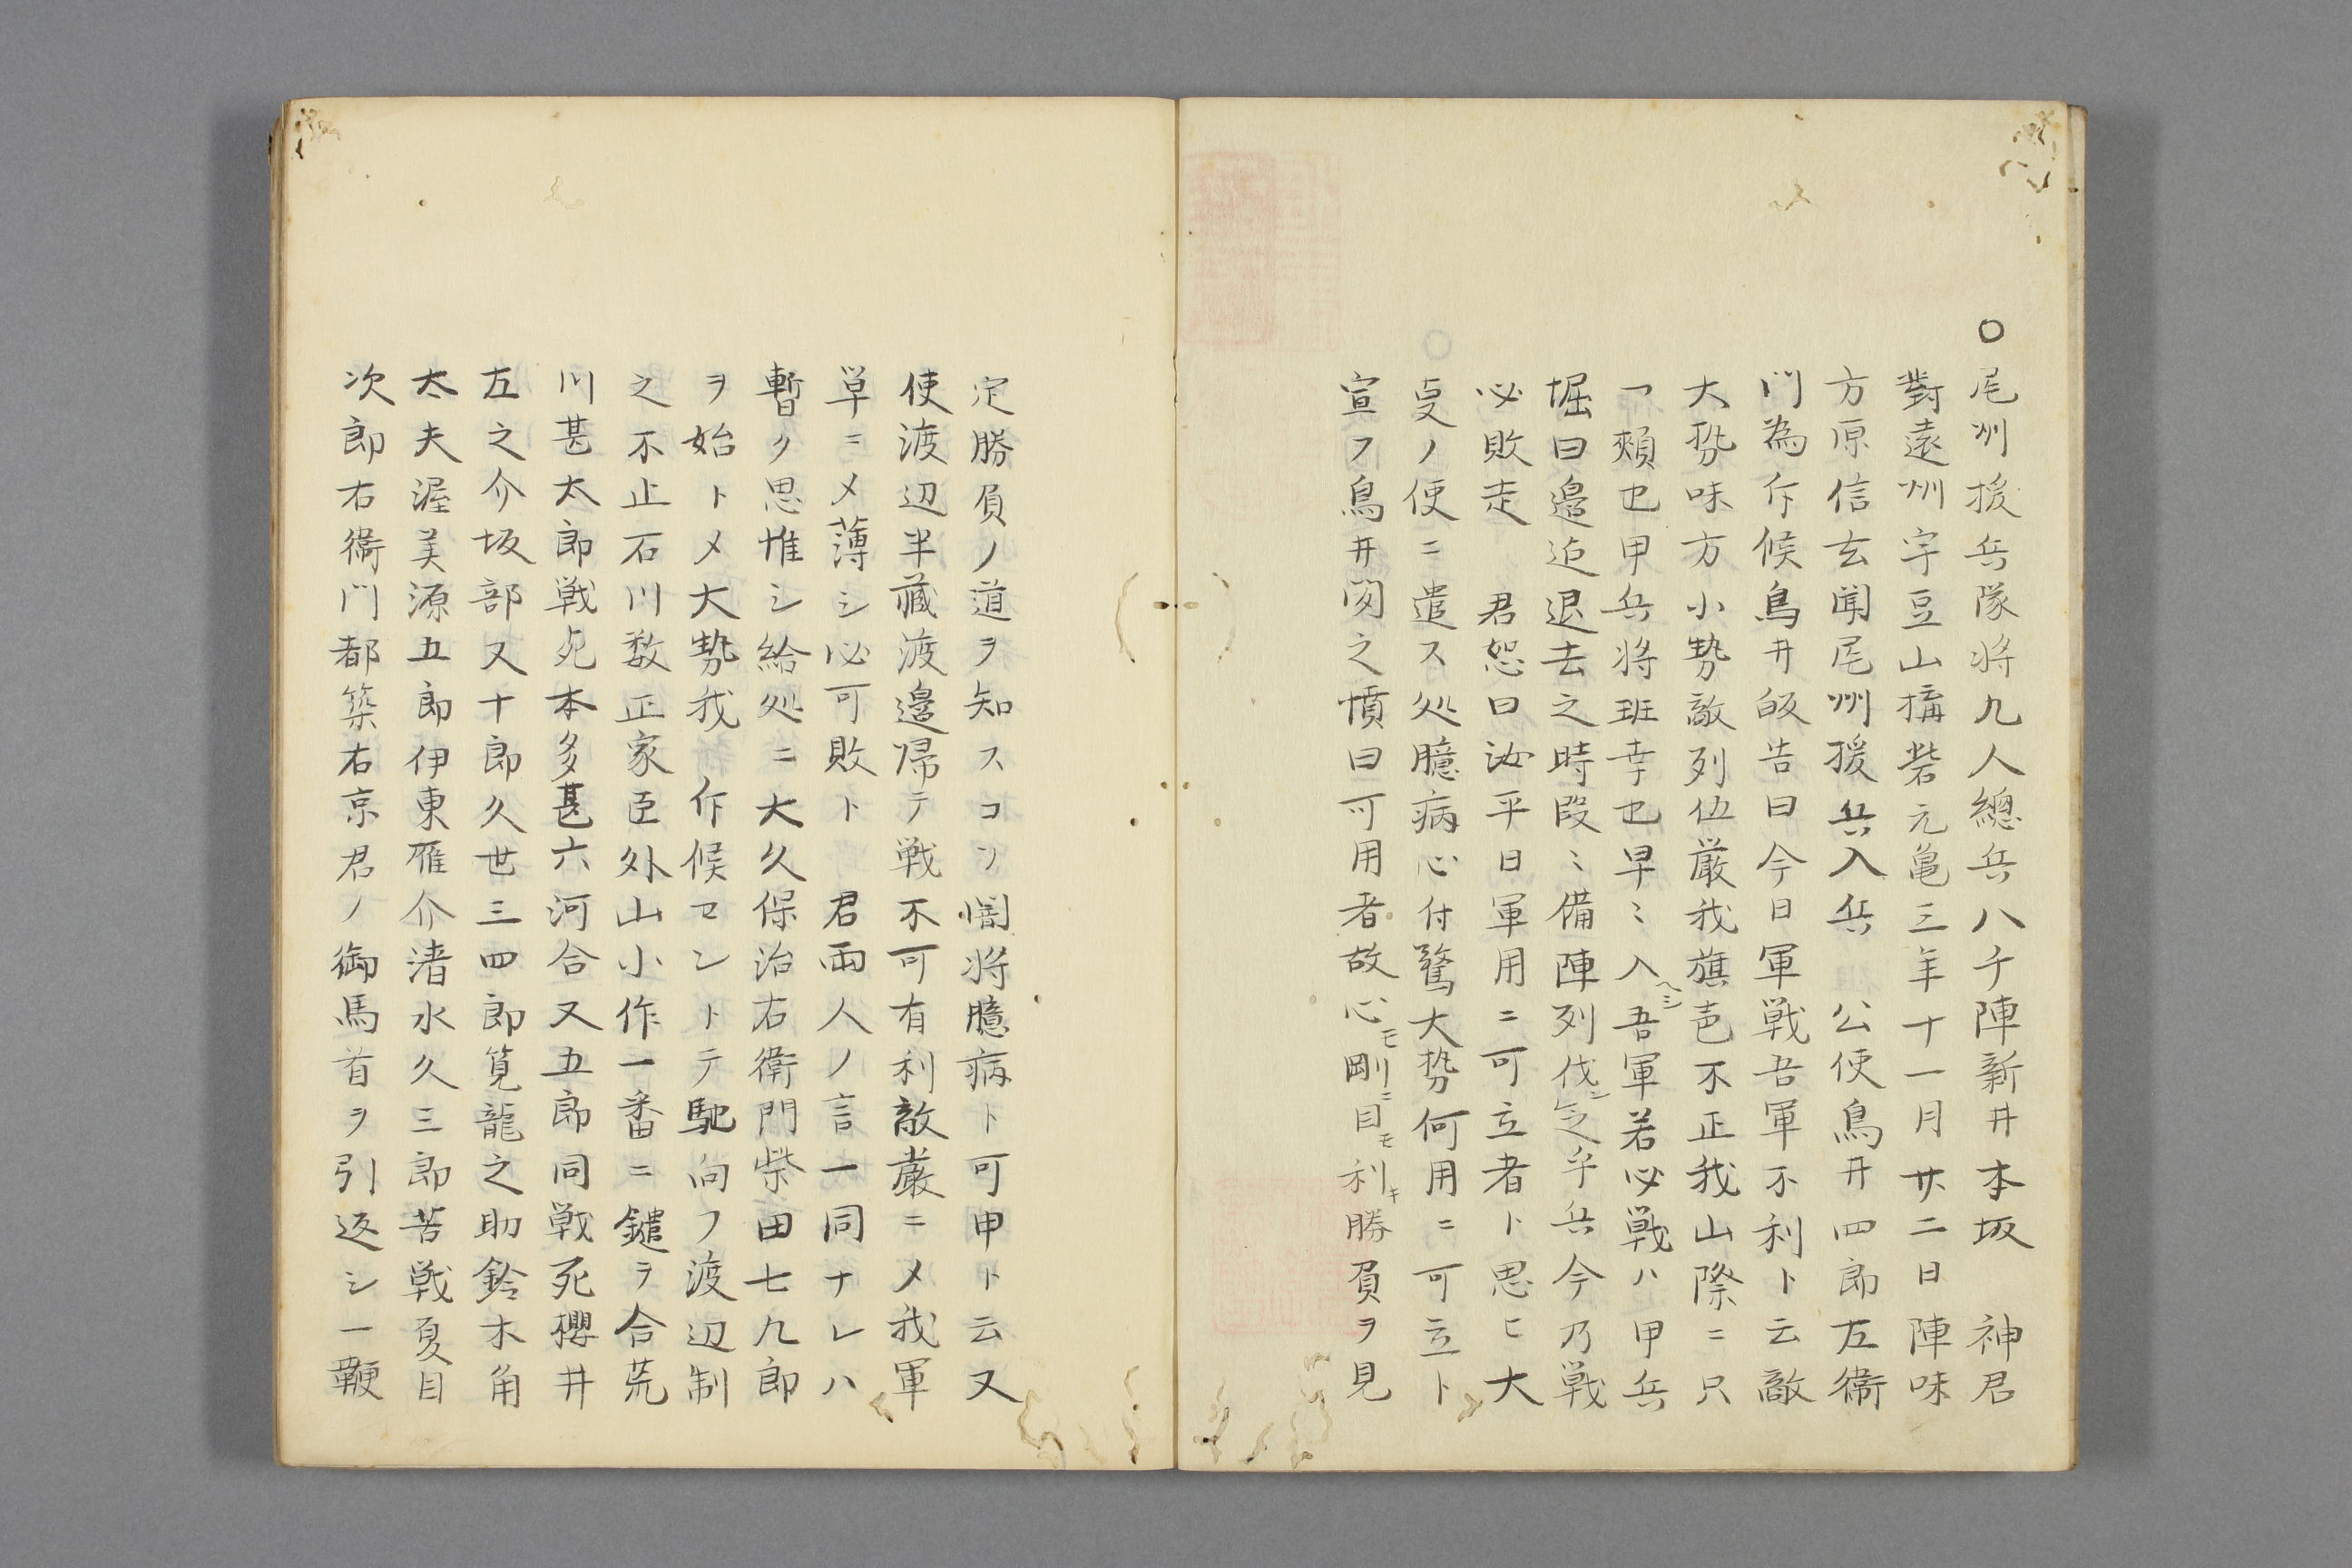 ○尾州援兵隊将九人總兵八千陣新井本坂　神君
對遠州宇豆山搆砦元亀三年十一月廿二日陣味
方原信玄聞尾州援兵入兵　公使鳥井四郎左衛
門為斥候鳥井皈告曰今日軍戦吾軍不利ト云敵
大勢味方小勢敵列伍厳我旗色不正我山際ニ只
一頬也甲兵将班幸也早ミ入ヘシ吾軍若必戦ハ甲兵
堀曰邉迠退去之時段ミ備陣列伐ニ之乎兵今乃戦
必敗走　君怒曰汝平日軍用ニ可立者ト思ヒ大
叓ノ使ニ遣ス処臆病心付驚大勢何用ニ可立ト
宣フ鳥井聞之憤曰可用者故心モ剛ニ目モ利キ勝負ヲ見
定勝負ノ道ヲ知スコソ闇将臆病ト可申ト云又
使渡辺半蔵渡邉帰テ戦不可有利敵厳ニメ我軍
単ニメ薄シ必可敗ト　君両人ノ言一同ナレハ
暫ク思惟シ給処ニ大久保治右衛門柴田七九郎
ヲ始トメ大勢我　斥候セントテ馳向フ渡辺制
之不止石川数正家臣外山小作一番ニ鑓ヲ合荒
川甚太郎戦死本多甚六河合又五郎同戦死櫻井
左之介坂部又十郎久世三四郎筧龍之助鈴木角
太夫渥美源五郎伊東雁介渚水久三郎苦戦夏目
次郎右衛門都築右京君ノ御馬首ヲ引返シ一鞭